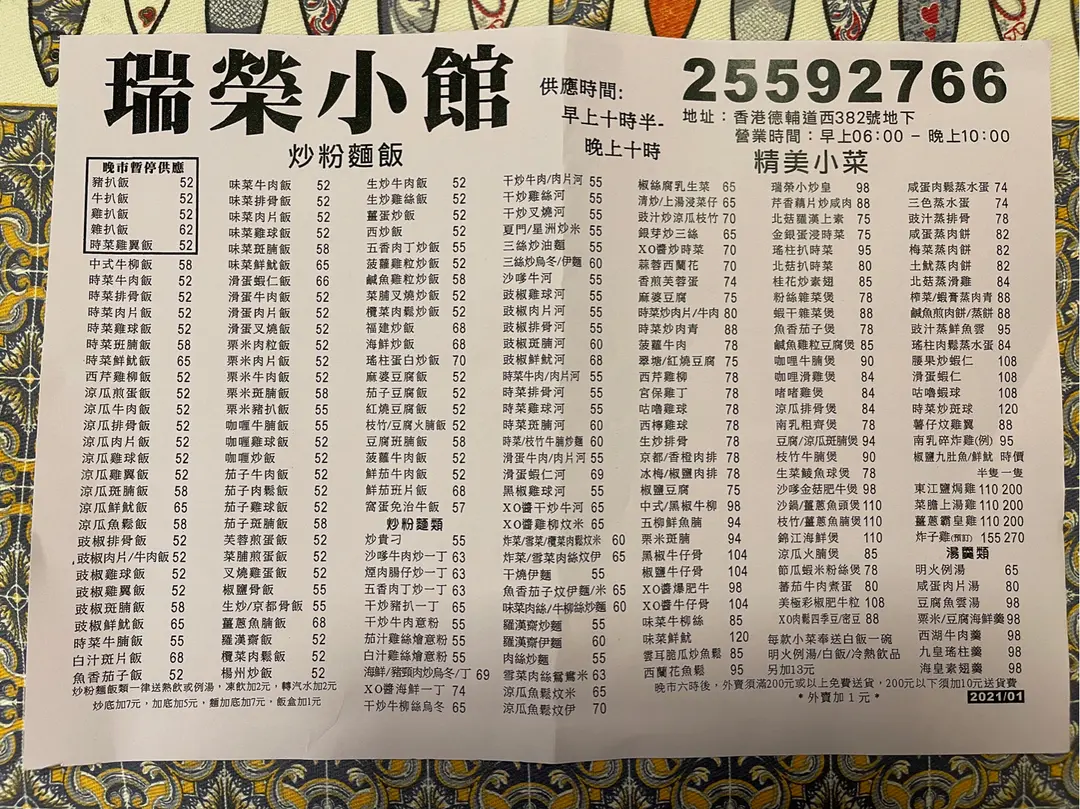 瑞榮小館
供應時間:
早上十時半-
晚上十時
25592766
地址：香港德輔道西382號地下
營業時間：早上06:00 - 晚上10:00
炒粉麵飯
晚市暫停供應
豬扒飯 52
牛扒飯 52
雞扒飯 52
雜扒飯 62
時菜雞翼飯 52
中式牛柳飯 58
時菜牛肉飯 52
時菜排骨飯 52
時菜肉片飯 52
時菜雞球飯 52
時菜班腩飯 58
時菜鮮魷飯 65
西芹雞柳飯 52
涼瓜煎蛋飯 52
涼瓜牛肉飯 52
涼瓜排骨飯 52
涼瓜肉片飯 52
涼瓜雞球飯 52
涼瓜雞翼飯 52
涼瓜斑腩飯 58
涼瓜鮮魷飯 65
涼瓜魚鬆飯 58
豉椒排骨飯 52
豉椒肉片/牛肉飯 52
豉椒雞球飯 52
豉椒雞翼飯 52
豉椒斑腩飯 58
豉椒鮮魷飯 65
時菜牛腩飯 55
白汁斑片飯 68
魚香茄子飯 52
味菜牛肉飯 52
味菜排骨飯 52
味菜肉片飯 52
味菜雞球飯 52
味菜斑腩飯 58
味菜鮮魷飯 65
滑蛋蝦仁飯 66
滑蛋牛肉飯 52
滑蛋叉燒飯 52
粟米肉粒飯 52
粟米肉片飯 52
粟米牛肉飯 52
粟米斑腩飯 58
粟米豬扒飯 55
咖喱牛腩飯 55
咖喱雞球飯 52
咖喱炒飯 52
茄子牛肉飯 52
茄子肉鬆飯 52
茄子雞球飯 52
茄子斑腩飯 58
芙蓉煎蛋飯 52
菜脯煎蛋飯 52
叉燒雞蛋飯 52
椒鹽骨飯 55
生炒/京都骨飯 55
薑蔥魚腩飯 68
羅漢齋飯 52
欖菜肉鬆飯 52
楊州炒飯 52
生炒牛肉飯 52
生炒雞絲飯 52
薑蛋炒飯 52
西炒飯 52
五香肉丁炒飯 52
菠蘿雞粒炒飯 52
鹹魚雞粒炒飯 58
菜脯叉燒炒飯 52
欖菜肉鬆炒飯 52
福建炒飯 68
海鮮炒飯 68
瑤柱蛋白炒飯 70
麻婆豆腐飯 52
茄子豆腐飯 52
紅燒豆腐飯 52
枝竹/豆腐火腩飯 52
豆腐班腩飯 58
菠蘿牛肉飯 52
鮮茄牛肉飯 52
鮮茄班片飯 68
窩蛋免治牛飯 57
炒粉麵類
炒貴刁 55
沙嗲牛肉炒一丁 63
煙肉腸仔炒一丁 63
五香肉丁炒一丁 63
干炒豬扒一丁 65
干炒牛肉意粉 55
茄汁雞絲燴意粉 55
白汁雞絲燴意粉 55
海鮮/豬頸肉炒烏冬/丁 69
XO醬海鮮一丁 74
干炒牛柳絲烏冬 65
干炒牛肉/肉片河 55
干炒雞絲河 55
干炒叉燒河 55
夏門/星洲炒米 55
三絲炒油麵 55
三絲炒烏冬/伊麵 60
沙嗲牛河 55
豉椒雞球河 55
豉椒肉片河 55
豉椒排骨河 55
豉椒斑腩河 60
豉椒鮮魷河 68
時菜牛肉/肉片河 55
時菜排骨河 55
時菜雞球河 55
時菜斑腩河 60
時菜/枝竹牛腩炒麵 60
滑蛋牛肉/肉片河 55
滑蛋蝦仁河 69
黑椒雞球河 55
XO醬干炒牛河 65
XO醬雞柳炆米 65
炸菜/雪菜/欖菜肉鬆炆米 60
炸菜/雪菜肉絲炆伊 65
干燒伊麵 55
魚香茄子炆伊麵/米 65
味菜肉絲/牛柳絲炒麵 60
羅漢齋炒麵 55
羅漢齋伊麵 60
肉絲炒麵 55
雪菜肉絲鴛鴦米 63
涼瓜魚鬆炆米 65
涼瓜魚鬆炆伊 70
炒粉麵飯類一律送熱飲或例湯，凍飲加2元，轉汽水加2元
炒底加7元，加底加5元，麵加底加7元，飯盒加1元
精美小菜
椒絲腐乳生菜 65
清炒/上湯浸菜仔 65
豉汁炒涼瓜枝竹 70
銀芽炒三絲 65
XO醬炒時菜 70
蒜蓉西蘭花 70
香煎芙蓉蛋 74
麻婆豆腐 75
時菜炒肉片/牛肉 80
時菜炒肉青 88
菠蘿牛肉 78
翠塘/紅燒豆腐 75
西芹雞柳 78
宮保雞丁 78
咕嚕雞球 78
西檸雞球 78
生炒排骨 78
京都/香橙肉排 78
冰梅/椒鹽肉排 78
椒鹽豆腐 75
中式/黑椒牛柳 98
五柳鮮魚腩 94
粟米斑腩 94
黑椒牛仔骨 104
椒鹽牛仔骨 104
XO醬爆肥牛 98
XO醬牛仔骨 104
味菜牛柳絲 85
味菜鮮魷 120
雲耳脆瓜炒魚鬆 85
西蘭花魚鬆 95
瑞榮小炒皇 98
芹香藕片炒咸肉 88
北菇羅漢上素 75
金銀蛋浸時菜 75
瑤柱扒時菜 95
北菇扒時菜 80
桂花炒素翅 85
粉絲雜菜煲 78
蝦干雜菜煲 88
魚香茄子煲 78
鹹魚雞粒豆腐煲 85
咖喱牛腩煲 90
咖喱滑雞煲 84
啫啫雞煲 84
涼瓜排骨煲 84
南乳粗齊煲 78
豆腐/涼瓜斑腩煲 94
枝竹牛腩煲 90
生菜鯪魚球煲 78
沙嗲金菇肥牛煲 98
沙鍋/薑蔥魚頭煲 110
枝竹/薑蔥魚腩煲 110
錦江海鮮煲 110
涼瓜火腩煲 85
節瓜蝦米粉絲煲 78
蕃茄牛肉煮蛋 80
美極彩椒肥牛粒 108
XO肉鬆四季豆/密豆 88
每款小菜奉送白飯一碗
明火例湯/白飯/冷熱飲品
另加13元
咸蛋肉鬆蒸水蛋 74
三色蒸水蛋 74
豉汁蒸排骨 78
咸蛋蒸肉餅 82
梅菜蒸肉餅 82
土魷蒸肉餅 82
北菇蒸滑雞 84
榨菜/蝦膏蒸肉青 88
鹹魚煎肉餅/蒸餅 88
豉汁蒸鮮魚雲 95
瑤柱肉鬆蒸水蛋 84
腰果炒蝦仁 108
滑蛋蝦仁 108
咕嚕蝦球 108
時菜炒斑球 120
薯仔炆雞翼 88
南乳碎炸雞(例) 95
椒鹽九肚魚/鮮魷 時價
半隻一隻
東江鹽焗雞 110 200
菜膽上湯雞 110 200
薑蔥霸皇雞 110 200
炸子雞(預訂) 155 270
湯羹類
明火例湯 65
咸蛋肉片湯 80
豆腐魚雲湯 98
粟米/豆腐海鮮羹 98
西湖牛肉羹 98
九皇瑤柱羹 98
海皇素翅羹 98
晚市六時後，外賣須滿200元或以上免費送貨，200元以下須加10元送貨費
*外賣加1元*
2021/01